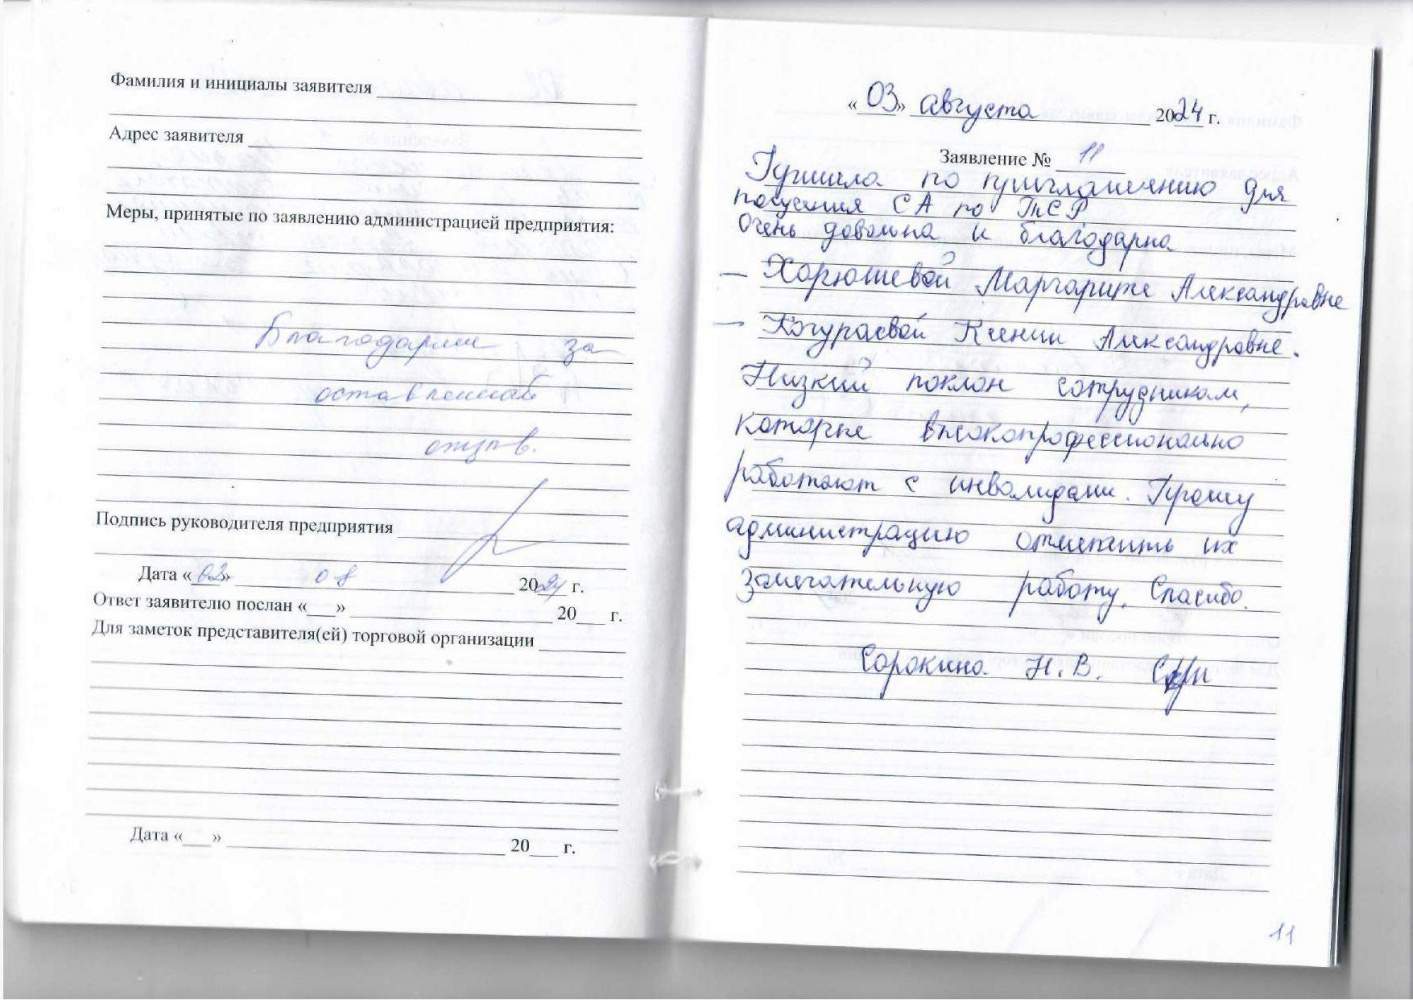 Фамилия и инициалы заявителя
Адрес заявителя
Меры, принятые по заявлению администрацией предприятия:
Благодарим за
оставленный
отзыв.
Подпись руководителя предприятия
Дата «02» 08 2024 г.
Ответ заявителю послан «___» 20___ г.
Для заметок представителя(ей) торговой организации
Дата «___» 20___ г.
«03» августа 2024 г.
Заявление № 11
Пришла по приглашению для
получения СА по ТСР
Очень довольна и благодарна
— Харюшевой Маргарите Александровне
— Кочураевой Ксении Александровне.
Низкий поклон сотрудникам,
которые высокопрофессионально
работают с инвалидами. Прошу
администрацию отметить их
замечательную работу. Спасибо.
Сорокина Н.В.
11